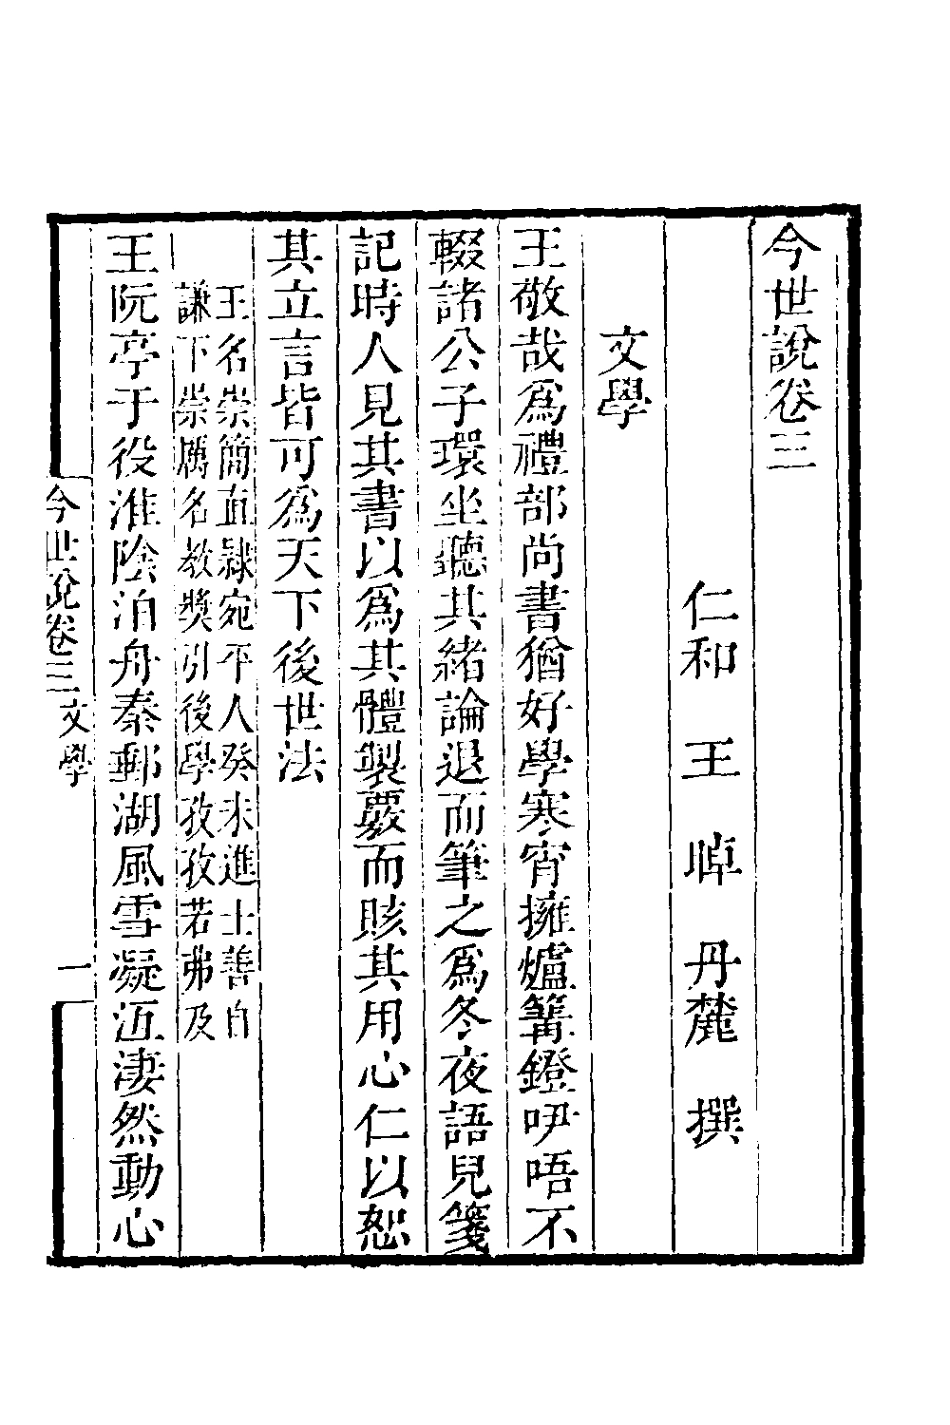 今世說卷三
仁和 王 晫 丹麓 撰
文學
王敬哉爲禮部尚書猶好學寒宵擁爐篝鐙吚唔不
輟諸公子環坐聽其緒論退而筆之爲冬夜語兒箋
記時人見其書以爲其體製覈而賅其用心仁以恕
其立言皆可爲天下後世法
王名崇簡直隸宛平人癸未進士善自
謙下崇厲名教獎引後學孜孜若弗及
王阮亭于役淮陰泊舟秦郵湖風雪凝沍淒然動心
今世說卷三 文學 一